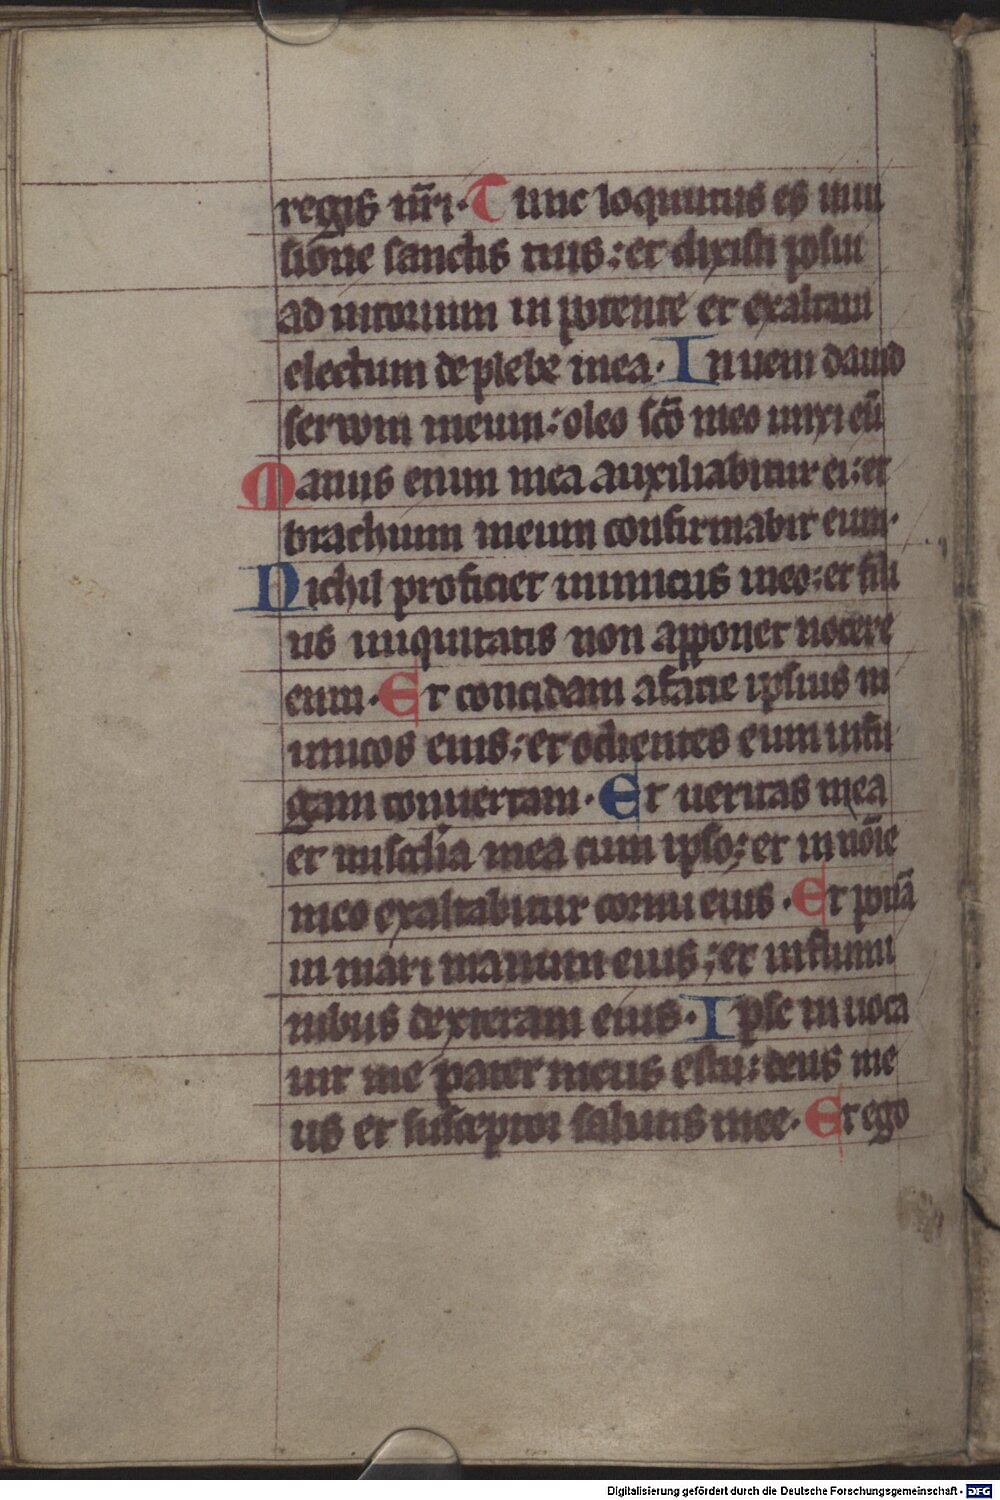 regis nr̄i. Tunc loquutus es in ui
sione sanctis tuis: et dixisti posui
adiutorium in potente et exaltaui
electum de plebe mea. Inueni dauid
seruum meum: oleo sc̄o meo unxi eū
Manus enim mea auxiliabitur ei: et
brachium meum confirmabit eum.
Nichil proficiet inimicus in eo: et fili
us iniquitatis non apponet nocere
eum. Et concidam a facie ipsius in
imicos eius: et odientes eum in fu
gam conuertam. Et ueritas mea
et mis̄cdia mea cum ipso: et in nōie
meo exaltabitur cornu eius. Et ponā
in mari manum eius: et in flumi
nibus dexteram eius. Ipse inuoca
uit me pater meus es tu: deus me
us et susceptor salutis mee. Et ego
Digitalisierung gefördert durch die Deutsche Forschungsgemeinschaft - DFG